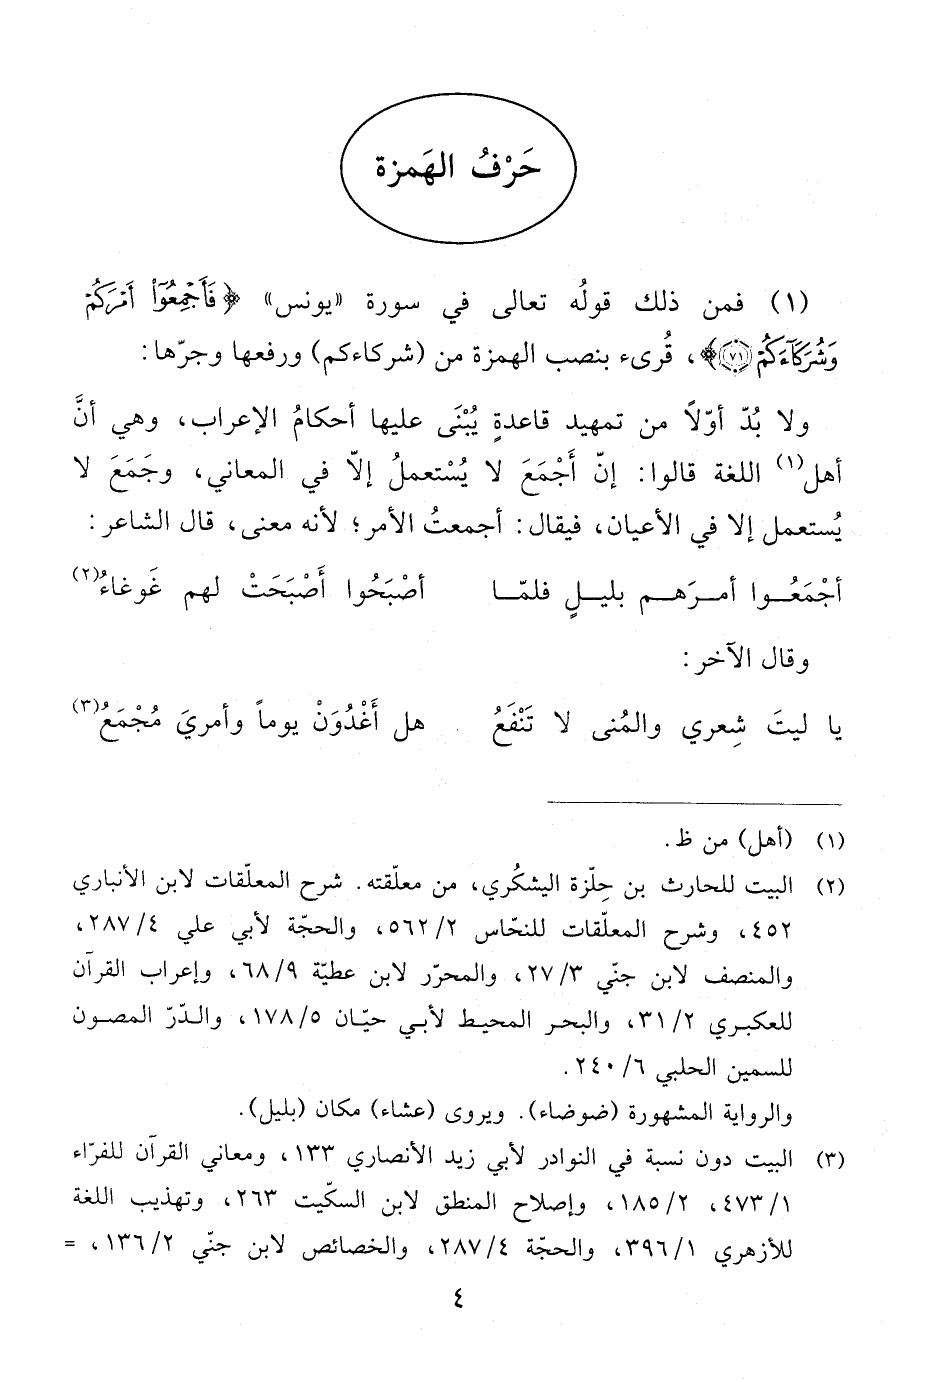 حَرْفُ الهَمزة
(١) فمن ذلك قولُه تعالى في سورة «يونس» ﴿فَأَجْمِعُوٓاْ أَمْرَكُمْ
وَشُرَكَآءَكُمْ ۝٧١﴾، قُرىء بنصب الهمزة من (شركاءكم) ورفعها وجرّها:
ولا بُدّ أوّلاً من تمهيد قاعدةٍ يُبْنَى عليها أحكامُ الإعراب، وهي أنَّ
أهل(١) اللغة قالوا: إنّ أَجْمَعَ لا يُسْتعملُ إلاّ في المعاني، وجَمَعَ لا
يُستعمل إلا في الأعيان، فيقال: أجمعتُ الأمر؛ لأنه معنى، قال الشاعر:
أجْمَعُـوا أمـرَهـم بليـلٍ فلمّـا أصْبَحُوا أَصْبَحَتْ لهم غَوغاءُ(٢)
وقال الآخر:
يا ليتَ شِعري والمُنى لا تَنْفَعُ هل أَغْدُوَنْ يوماً وأمريَ مُجْمَعُ(٣)
(١) (أهل) من ظ.
(٢) البيت للحارث بن حِلّزة اليشكُري، من معلّقته. شرح المعلّقات لابن الأنباري
٤٥٢، وشرح المعلّقات للنحّاس ٥٦٢/٢، والحجّة لأبي علي ٢٨٧/٤،
والمنصف لابن جنّي ٢٧/٣، والمحرّر لابن عطيّة ٦٨/٩، وإعراب القرآن
للعكبري ٣١/٢، والبحر المحيط لأبي حيّان ١٧٨/٥، والدّرّ المصون
للسمين الحلبي ٢٤٠/٦.
والرواية المشهورة (ضوضاء). ويروى (عشاء) مكان (بليل).
(٣) البيت دون نسبة في النوادر لأبي زيد الأنصاري ١٣٣، ومعاني القرآن للفرّاء
٤٧٣/١، ١٨٥/٢، وإصلاح المنطق لابن السكّيت ٢٦٣، وتهذيب اللغة
للأزهري ٣٩٦/١، والحجّة ٢٨٧/٤، والخصائص لابن جنّي ١٣٦/٢، =
٤